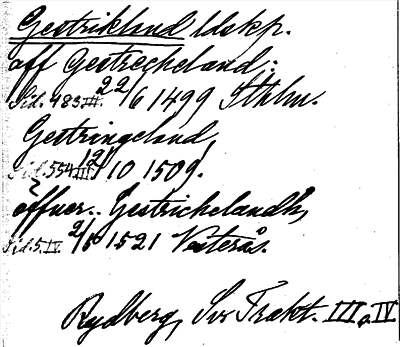 Gestrikland ldskp.
aff Gestrecheland:
Sid. 483 III. 22/6 1499 Sthlm.
Gestringeland,
Sid. 554 III 12/10 1509.
öffuer.. Gestrichelandh,
Sid. 5. IV. 2/6 1521 Vesterås.
Rydberg, Sv. Trakt. III o. IV